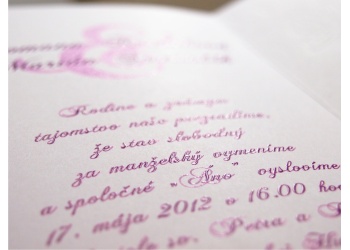 &
Rodine a známym
tajomstvo naše prezradíme,
že stav slobodný
za manželský vymeníme
a spoločné „Áno" vyslovíme
17. mája 2012 o 16.00
Petra a